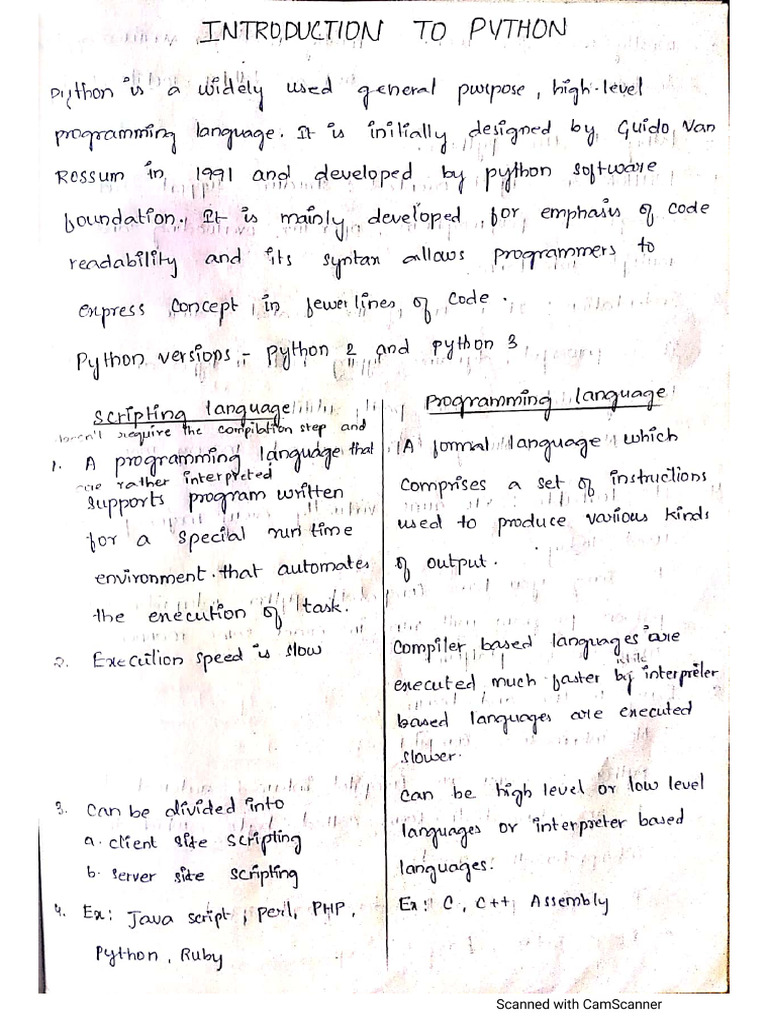 INTRODUCTION TO PYTHON
Python is a widely used general purpose, high-level
programming language. It is initially designed by Guido Van
Rossum in 1991 and developed by python software
foundation. It is mainly developed for emphasis of code
readability and its syntax allows programmers to
express concept in fewer lines of code.
Python versions - Python 2 and Python 3
Scripting language
doesn't require the compilation step and
1. A programming language that
are rather interpreted
supports program written
for a special run time
environment that automates
the execution of task.
2. Execution speed is slow
3. Can be divided into
a. client site scripting
b. server site scripting
4. Ex: Java script, Perl, PHP,
Python, Ruby
Programming language
A formal language which
comprises a set of instructions
used to produce various kinds
of output.
Compiler based languages are
while
executed much faster by interpreter
based languages are executed
slower.
Can be high level or low level
languages or interpreter based
languages.
Ex: C, C++, Assembly
Scanned with CamScanner